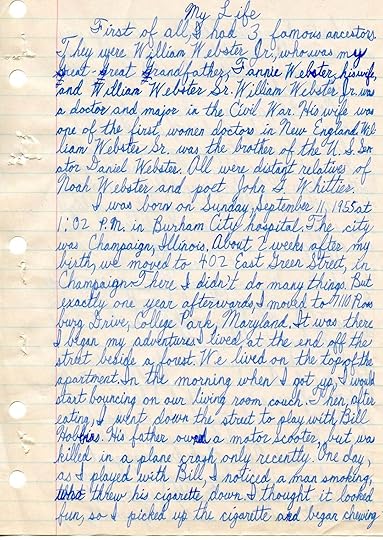 My Life
First of all, I had 3 famous ancestors.
They were William Webster Jr., who was my
great-great grandfather, Fannie Webster, his wife,
and William Webster Sr. William Webster Jr. was
a doctor and major in the Civil War. His wife was
one of the first women doctors in New England. Wil-
liam Webster Sr. was the brother of the U.S. Sen-
ator Daniel Webster. All were distant relatives of
Noah Webster and poet John G. Whittier.
I was born on Sunday, September 11, 1955 at
1:02 P.M. in Burham City hospital. The city
was Champaign, Illinois. About 2 weeks after my
birth, we moved to 402 East Green Street, in
Champaign. There I didn't do many things. But
exactly one year afterwards, I moved to 7110 Ross
burg Drive, College Park, Maryland. It was there
I began my adventures. I lived at the end off the
street beside a forest. We lived on the top of the
apartment. In the morning when I got up, I would
start bouncing on our living room couch. Then, after
eating, I went down the street to play with Bill
His father owned a motor scooter, but was
killed in a plane crash only recently. One day,
as I played with Bill, I noticed a man smoking,
threw his cigarette down. I thought it looked
fun, so I picked up the cigarette and began chewing